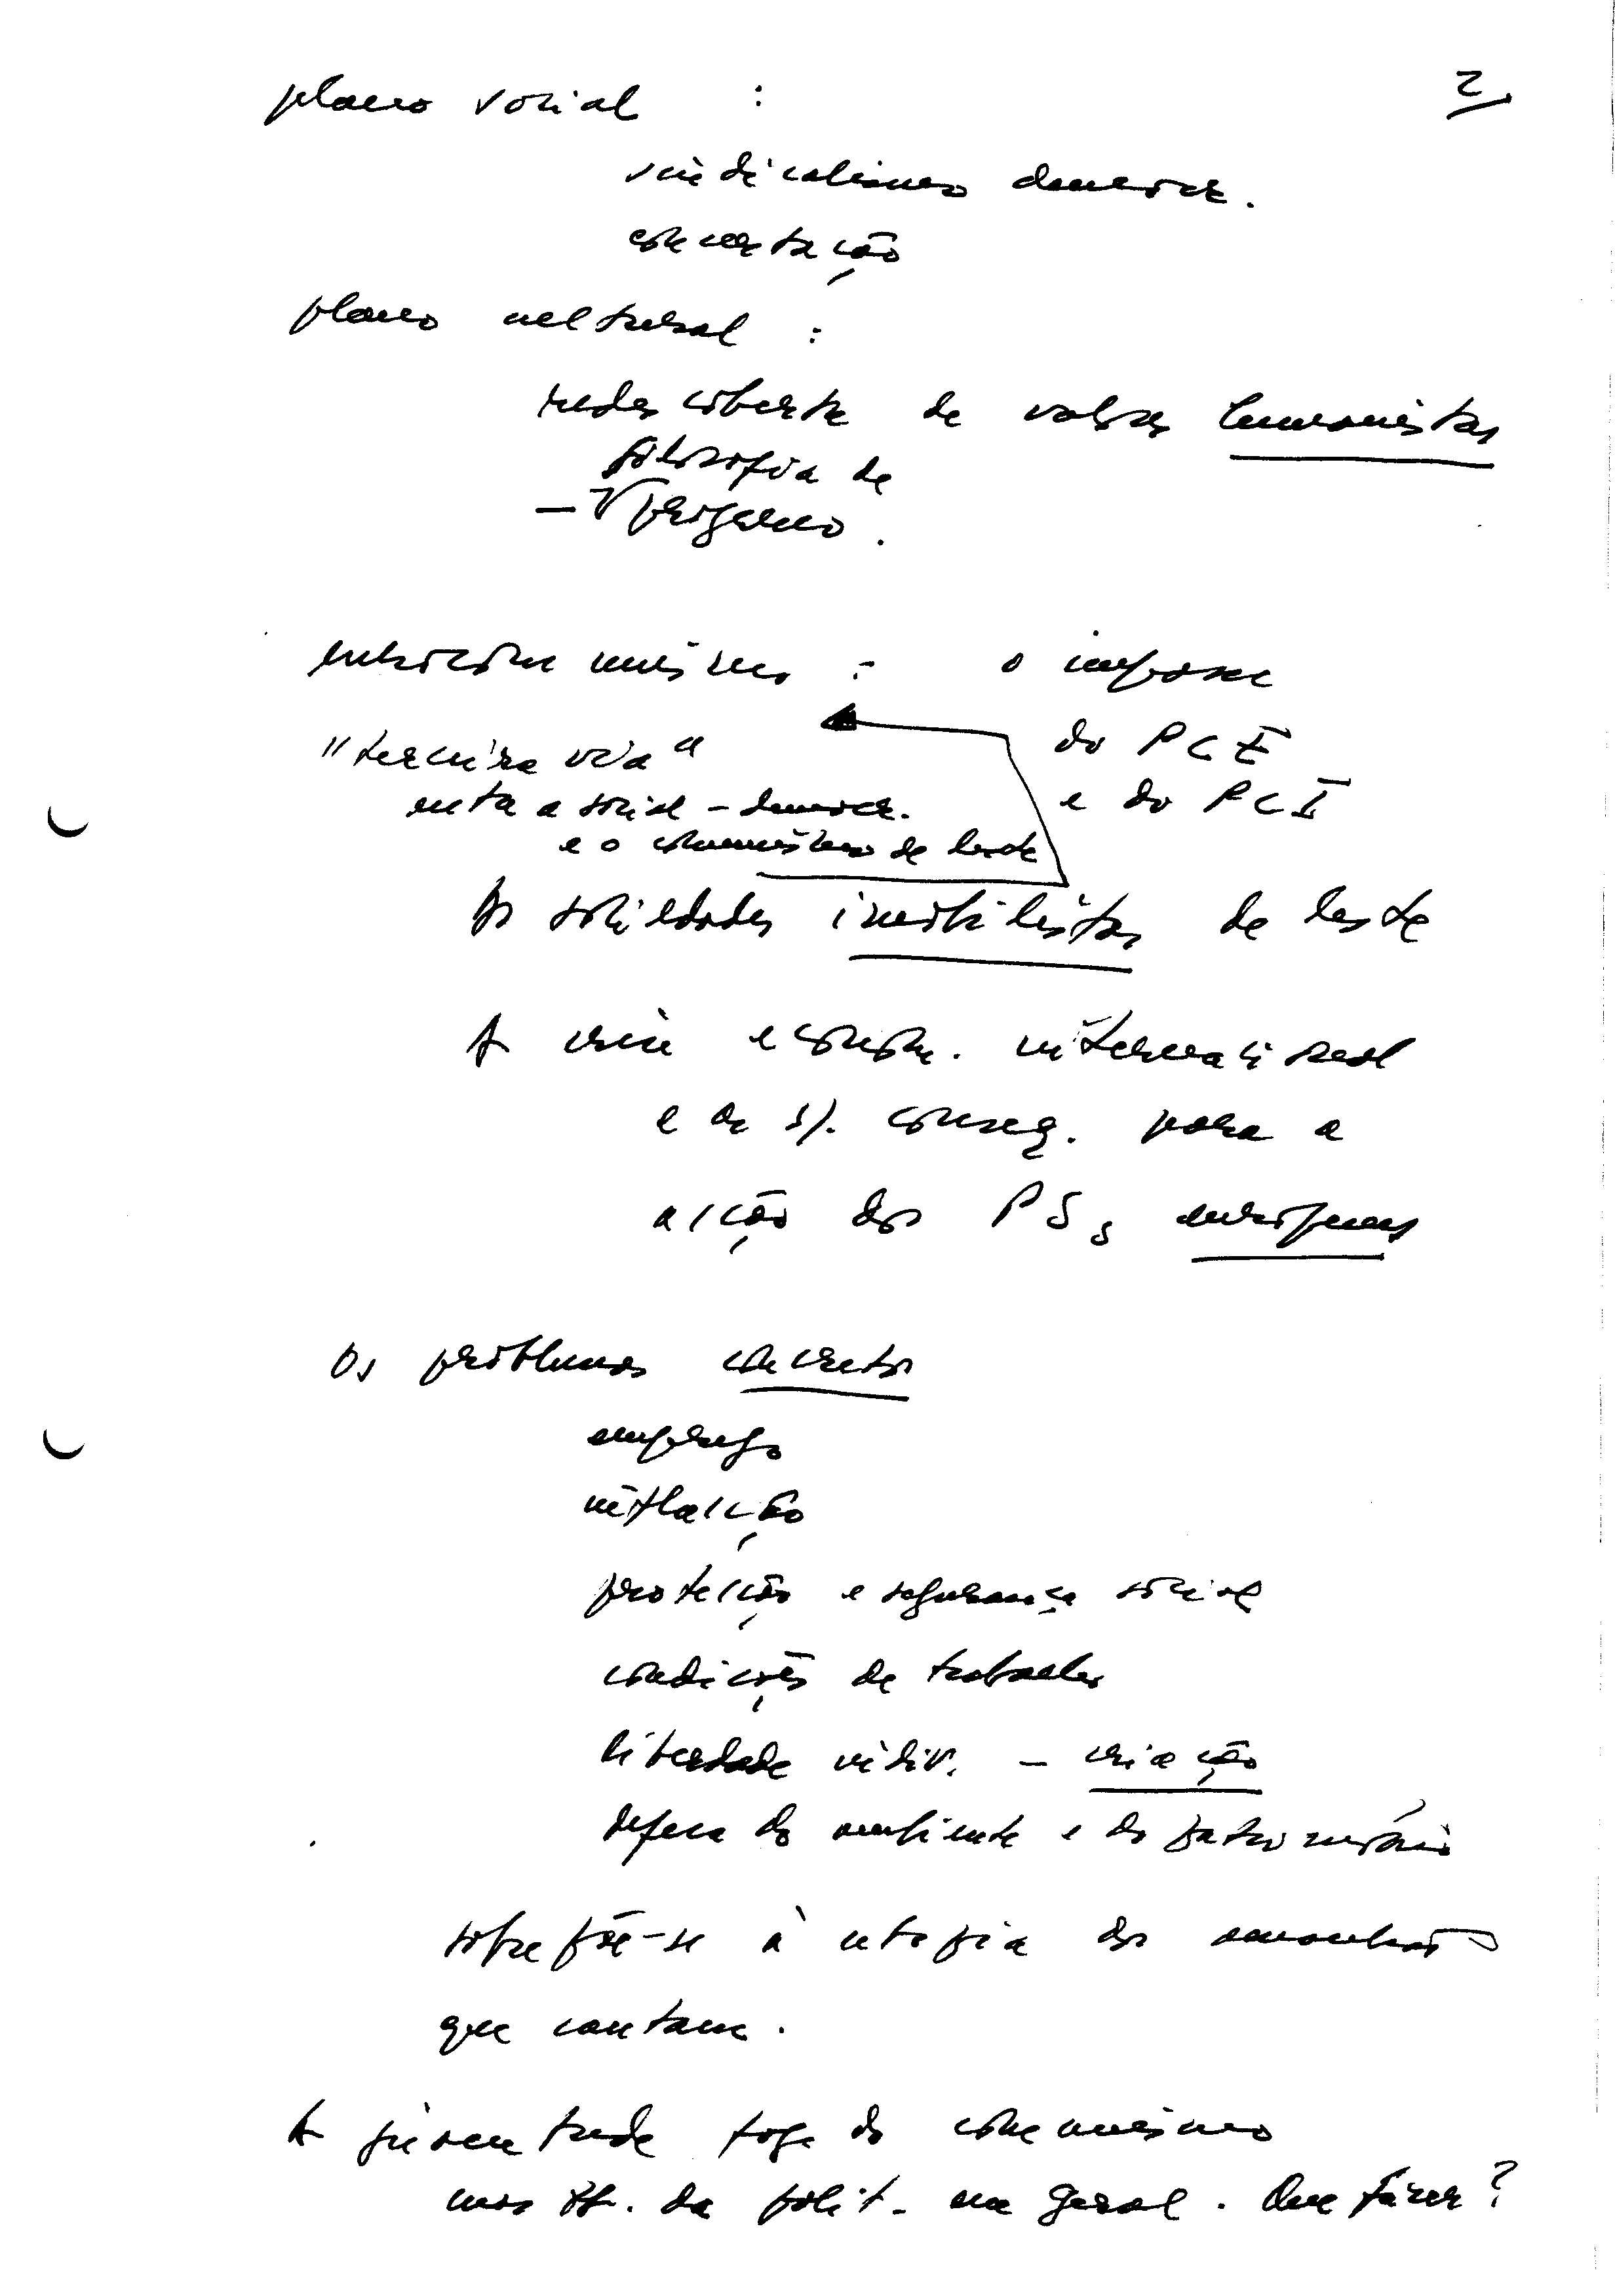 2.
plano social :
sindicalismo democr.
concertação
plano cultural :
redescoberta de valores humanistas
filosofia de
— progresso.
eurocomunismo : o impasse
"terceira via" do PCE
entre a social-democr. e do PCI
e o comunismo de leste
As sociedades imobilistas de leste
A crise econom. internacional
e as s/. conseq. para a
acção dos PSs europeus
Os problemas concretos
emprego
inflacção
protecção e segurança social
condições de trabalho
liberdade indiv. — criação
defesa do ambiente e do património
sobrepõe-se à utopia dos amanhãs
que cantam.
A juventude foge do comunismo
mas tb. da polit. em geral. Que fazer?